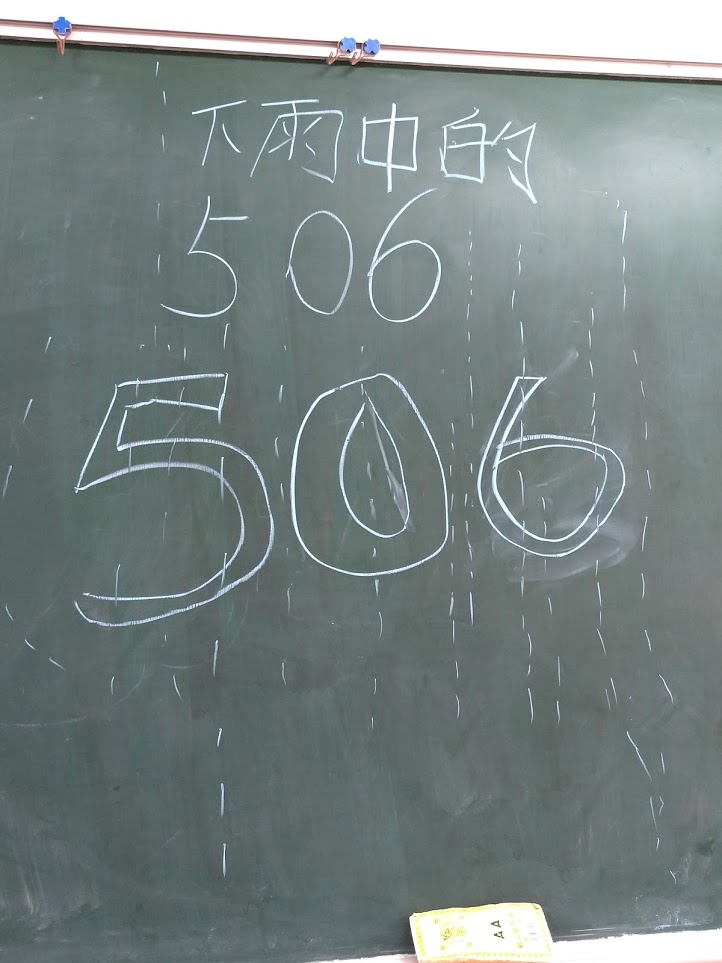 下雨中的
506
506
AA